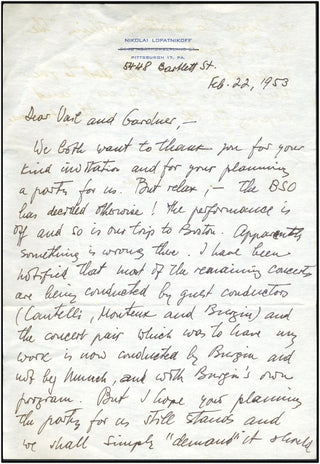 NIKOLAI LOPATNIKOFF
PITTSBURGH 17, PA.
5448 Bartlett St.
Feb. 22, 1953
Dear Vast and Gardner, –
We both want to thank you for your
kind invitation and for your planning
a party for us. But relax, – the BSO
has decided otherwise! The performance is
off and so is our trip to Boston. Apparently
something is wrong there. I have been
notified that most of the remaining concerts
are being conducted by guest conductors
(Cantelli, Monteux and Burgin) and
the concert pair which was to have my
work is now conducted by Burgin and
not by Munch, and with Burgin's own
program. But I hope your planning
the party for us still stands and
we shall simply "demand" it should